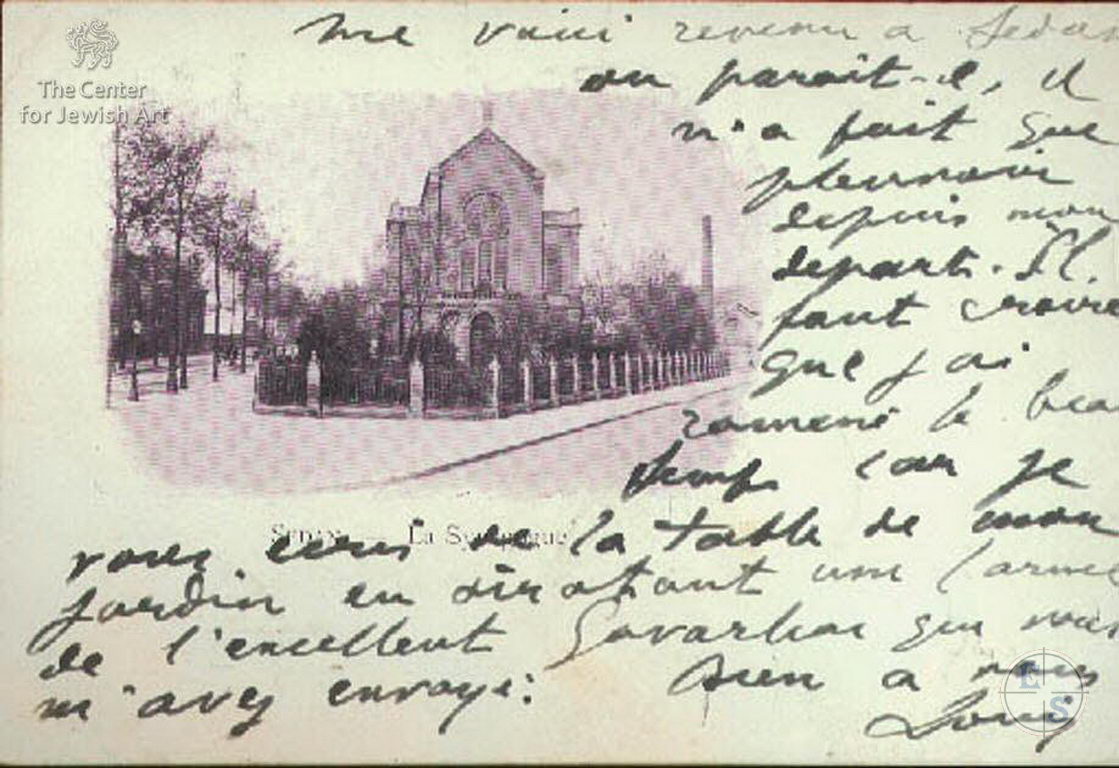 The Center
for Jewish Art
me voici revenu a Sedan
ou parait-il, il
n'a fait que
pleuvoir
depuis mon
depart. Il
faut croire
que j'ai
ramené le beau
temps car je
SEDAN. — La Synagogue
vous ecris de la table de mon
jardin en sirotant une larme
de l'excellent qui vous
m'avez envoyé. Bien a vous
Louis
E
S